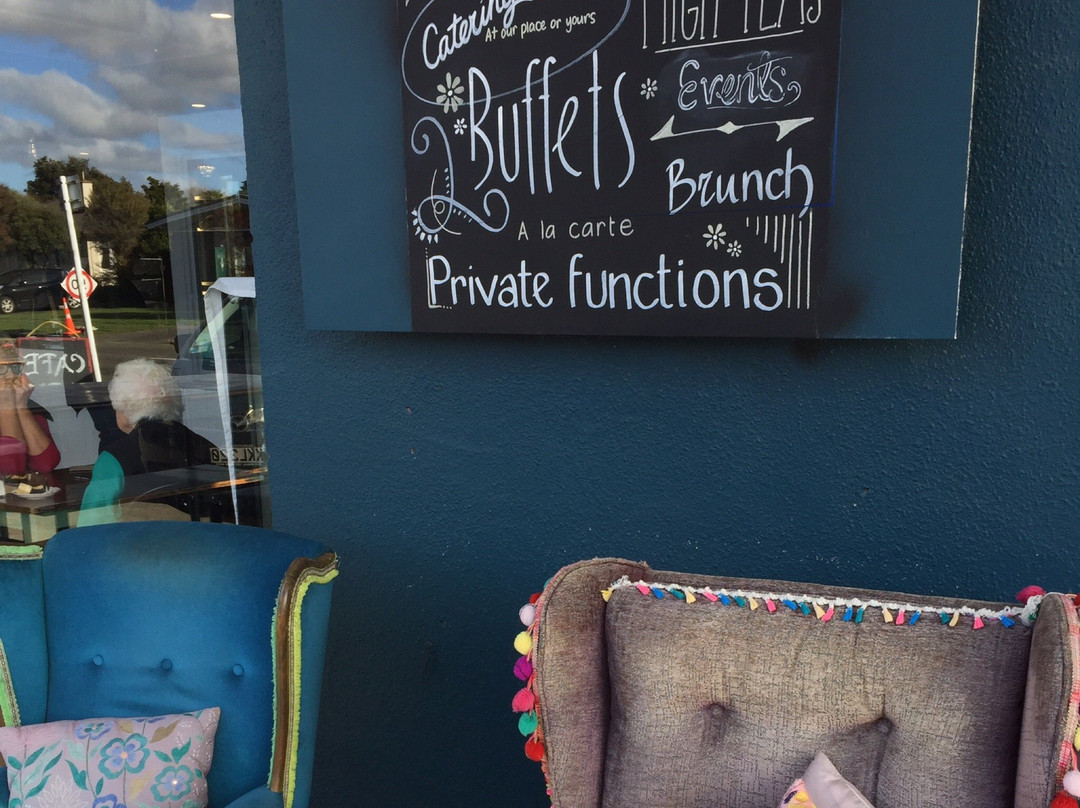 Catering
At our place or yours
HIGH TEAS
Buffets
Events
Brunch
A la carte
Private functions
CAFE